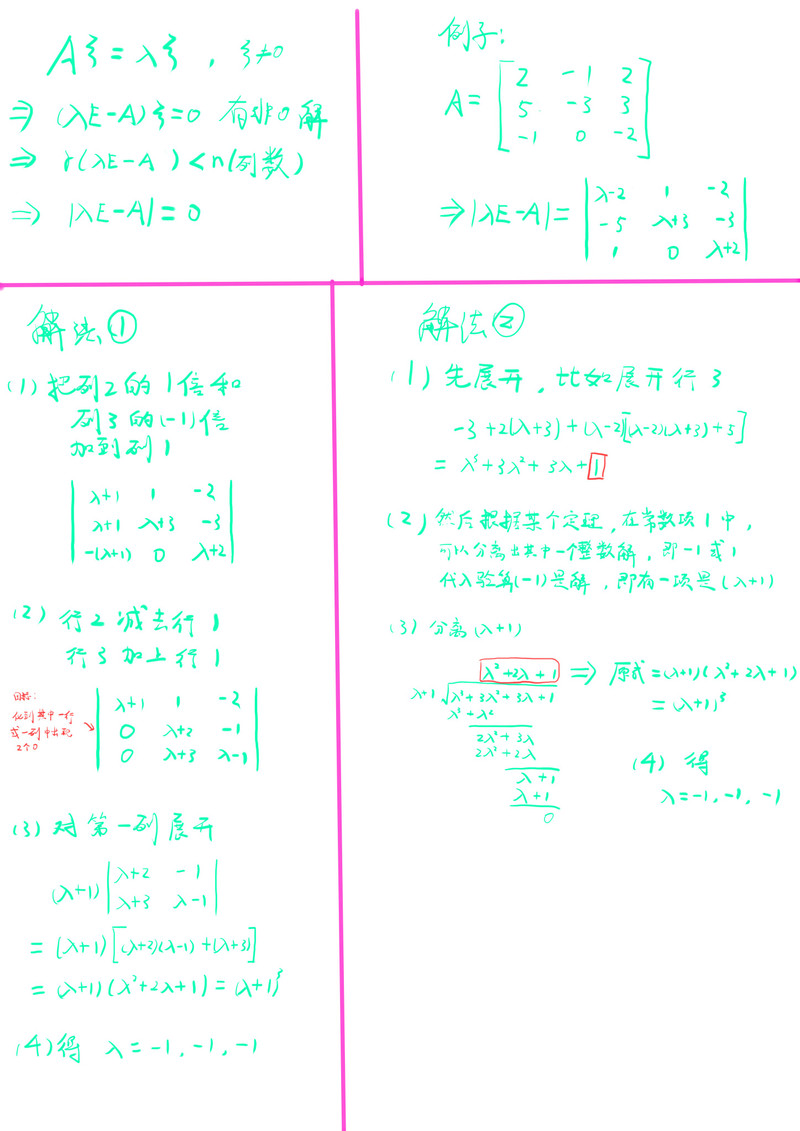 Aξ = λξ , ξ≠0
⇒ (λE-A)ξ=0 有非0解
⇒ r(λE-A) < n(列数)
⇒ |λE-A| = 0
例子:
A = [2 -1 2
5 -3 3
-1 0 -2]
⇒ |λE-A| = |λ-2 1 -2
-5 λ+3 -3
1 0 λ+2|
解法①
(1) 把列2的1倍和
列3的(-1)倍
加到列1
|λ+1 1 -2
λ+1 λ+3 -3
-(λ+1) 0 λ+2|
(2) 行2减去行1
行3加上行1
目标:
化到其中一行
或一列中出现
2个0
|λ+1 1 -2
0 λ+2 -1
0 λ+3 λ-1|
(3) 对第一列展开
(λ+1) |λ+2 -1
λ+3 λ-1|
= (λ+1)[(λ+2)(λ-1)+(λ+3)]
= (λ+1)(λ²+2λ+1) = (λ+1)³
(4) 得 λ = -1, -1, -1
解法②
(1) 先展开,比如展开行3
-3+2(λ+3)+(λ-2)[(λ-2)(λ+3)+5]
= λ³+3λ²+3λ+1
(2) 然后根据某个定理,在常数项1中,
可以分离出其中一个整数解,即-1或1
代入验算(-1)是解,即有一项是(λ+1)
(3) 分离(λ+1)
λ²+2λ+1 ⇒ 原式=(λ+1)(λ²+2λ+1)
λ+1 √λ³+3λ²+3λ+1 = (λ+1)³
λ³+λ²
2λ²+3λ
2λ²+2λ
λ+1
λ+1
0
(4) 得
λ=-1, -1, -1